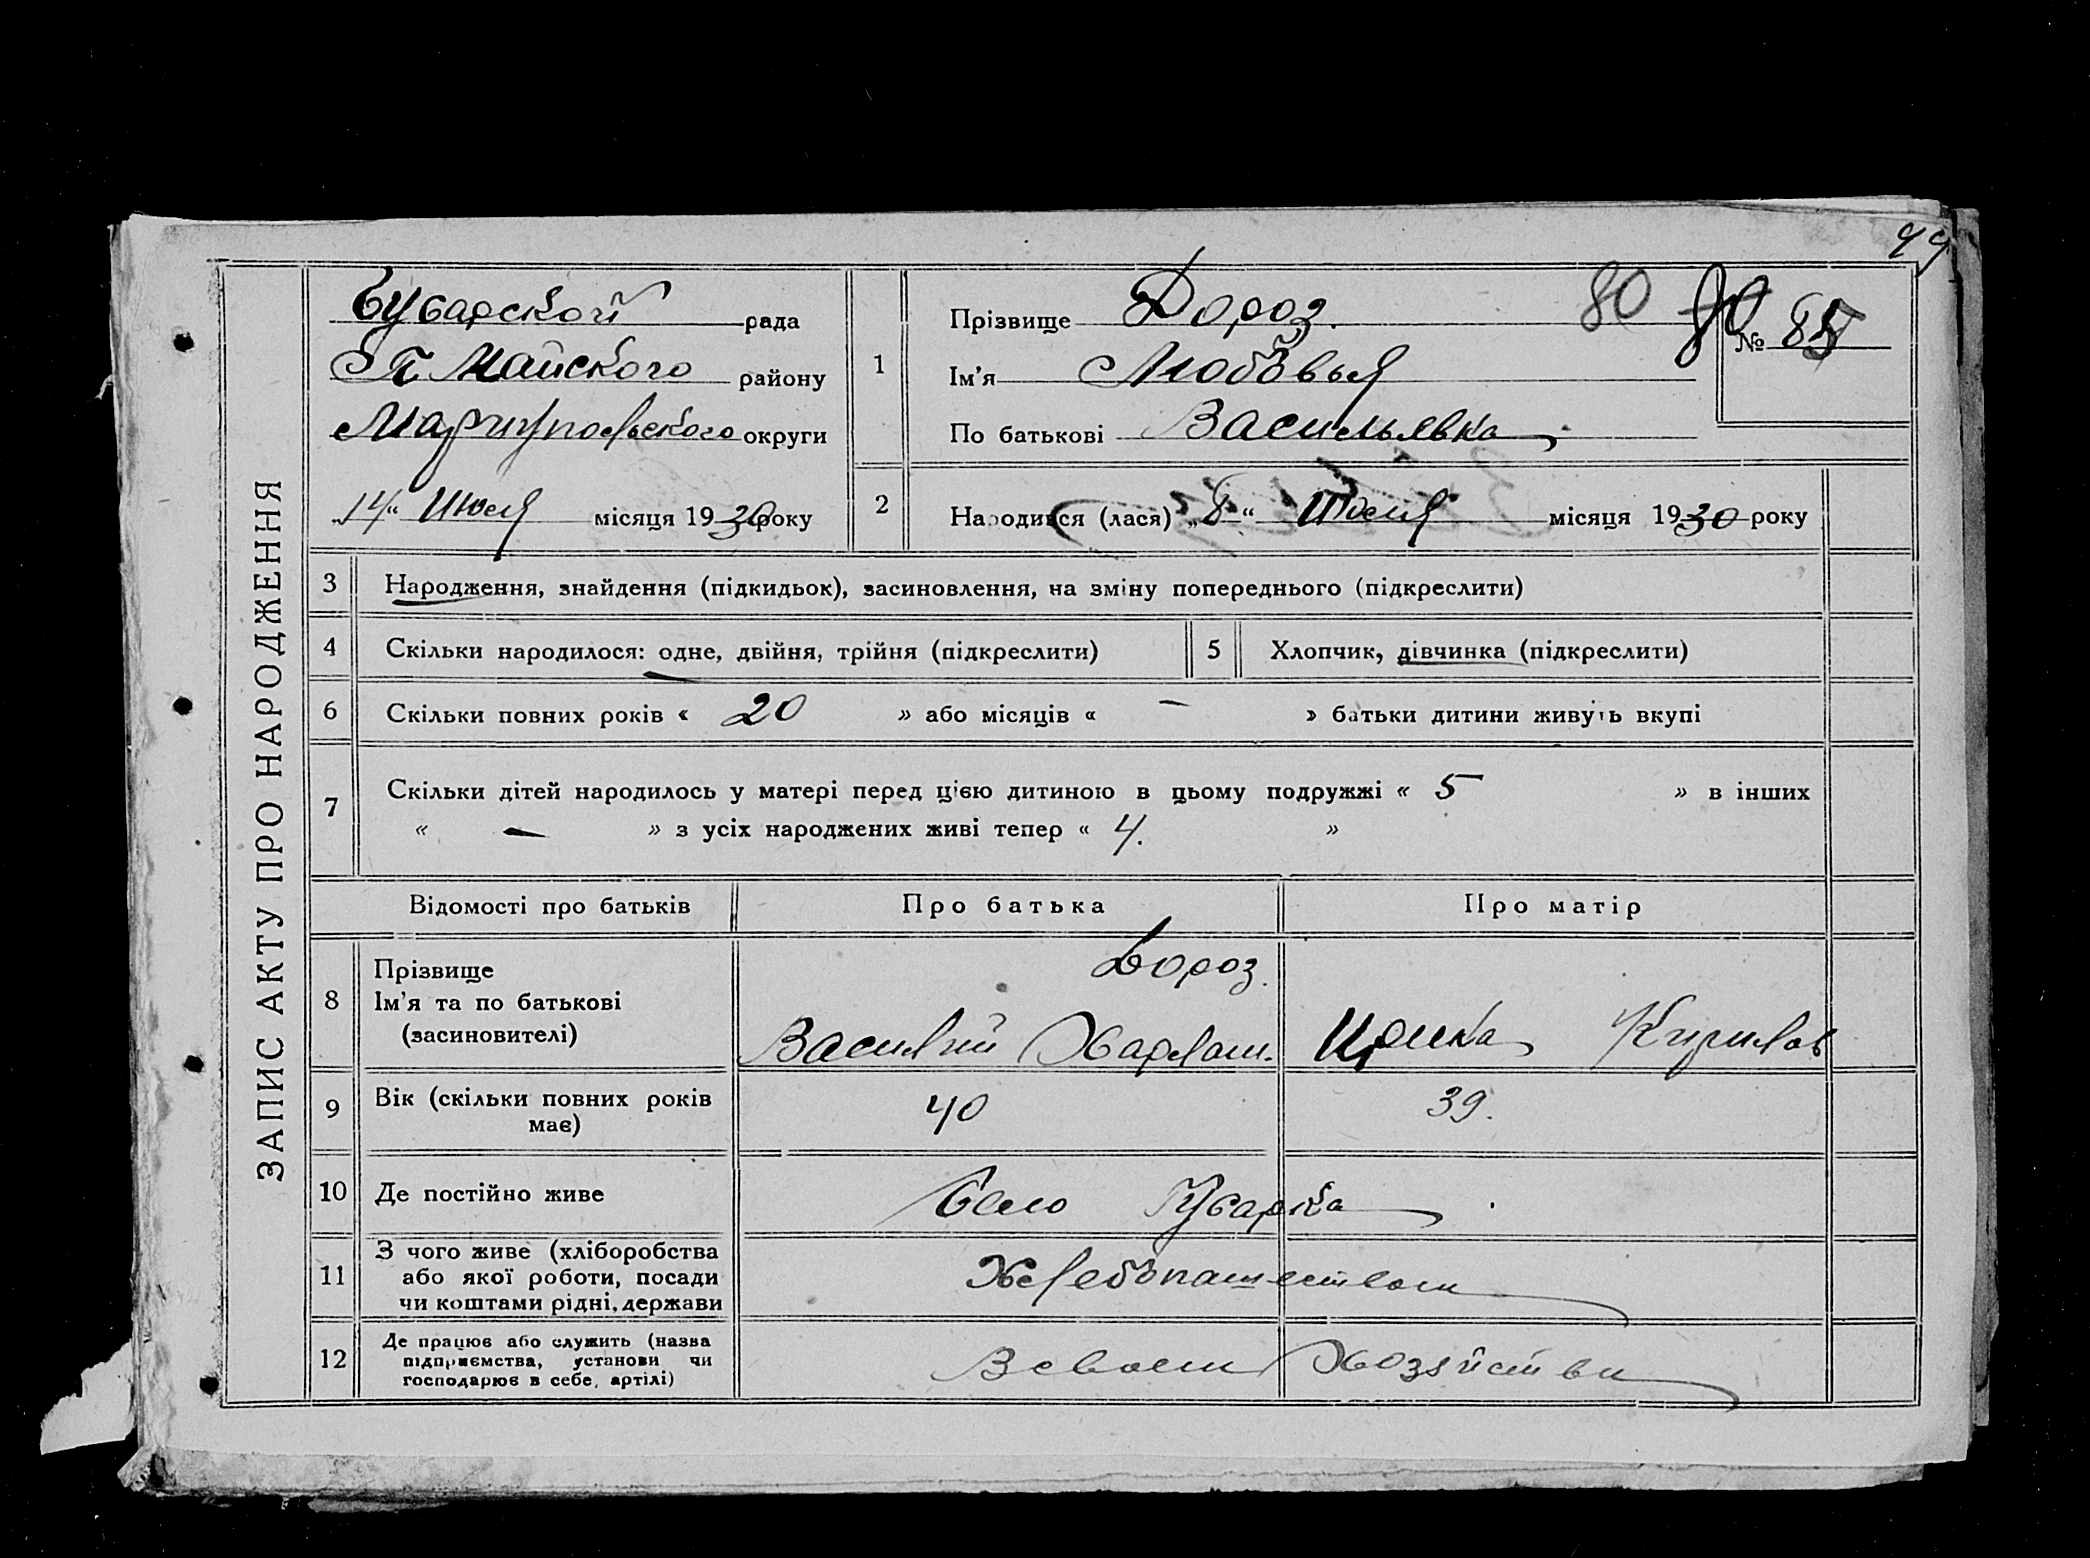 99
ЗАПИС АКТУ ПРО НАРОДЖЕННЯ
Бугарской рада
Ст Майского району
Мариупольского округи
„14“ Июля місяця 1930 року
1
Прізвище Дороз. 80 80 № 85
Ім'я Любовья
По батькові Васильявна
2
Народився (лася) „8“ Июля місяця 1930 року
3 Народження, знайдення (підкидьок), засиновлення, на зміну попереднього (підкреслити)
4 Скільки народилося: одне, двійня, трійня (підкреслити) 5 Хлопчик, дівчинка (підкреслити)
6 Скільки повних років « 20 » або місяців « – » батьки дитини живуть вкупі
7 Скільки дітей народилось у матері перед цією дитиною в цьому подружжі « 5 » в інших
« – » з усіх народжених живі тепер « 4. »
Відомості про батьків Про батька Про матір
8 Прізвище Дороз.
Ім'я та по батькові
(засиновителі) Василий Харлам. Ирина Кирилов
9 Вік (скільки повних років має) 40 39.
10 Де постійно живе Село Бугарка
11 З чого живе (хліборобства
або якої роботи, посади
чи коштами рідні, держави Хлебопашеством
12 Де працює або служить (назва
підприємства, установи чи
господарює в себе, артілі) В своем Хозяйстви